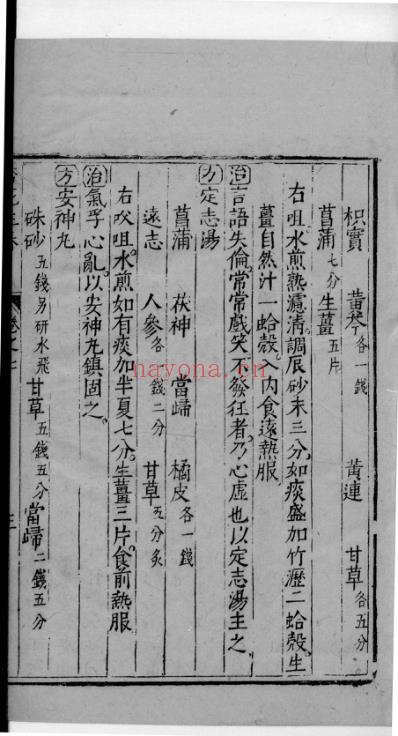 枳實　黃芩各一錢　黃連　甘草各五分
菖蒲七分生薑五片
右㕮咀水煎熟濾清調辰砂末三分如痰盛加竹瀝二蛤殼生
薑自然汁一蛤殼入內食遠熱服
治言語失倫常常戲笑不發狂者乃心虛也以定志湯主之
方定志湯
菖蒲　茯神　當歸　橘皮各一錢
遠志　人參各一錢二分　甘草五分炙
右㕮咀水煎如有痰加半夏七分生薑三片食前熱服
治氣浮心亂以安神丸鎮固之
方安神丸
硃砂五錢另研水飛甘草五錢五分當歸二錢五分
卷之七
nayona.cn